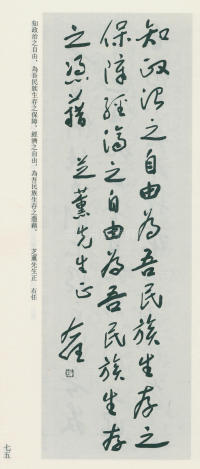 知政治之自由為吾民族生存之
保障經濟之自由為吾民族生存
之憑藉 芝薰先生正 右任
知政治之自由，為吾民族生存之保障，經濟之自由，為吾民族生存之憑藉。 芝薰先生正 右任
七五